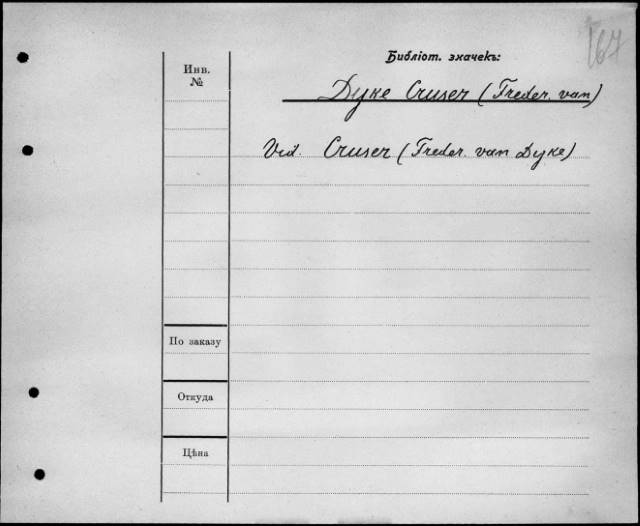 167
Библіот. значекъ:
Инв.
№
Dyke Cruser (Freder. van)
Vid. Cruser (Freder. van Dyke)
По заказу
Откуда
Цѣна